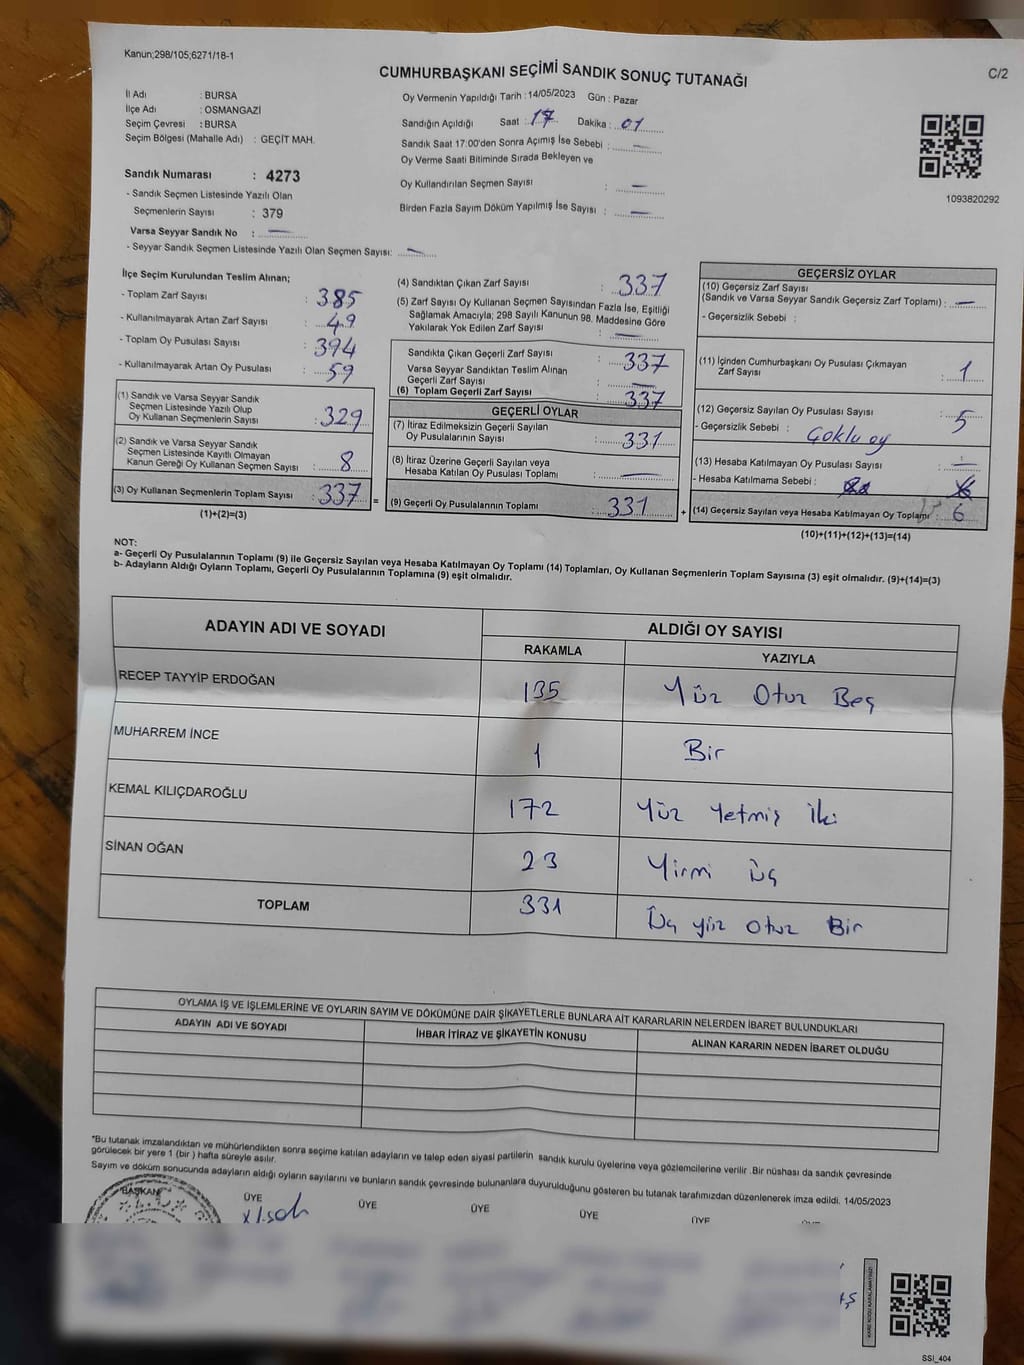 Kanun;298/105;6271/18-1
CUMHURBAŞKANI SEÇİMİ SANDIK SONUÇ TUTANAĞI
C/2
İl Adı : BURSA
İlçe Adı : OSMANGAZİ
Seçim Çevresi : BURSA
Seçim Bölgesi (Mahalle Adı) : GEÇİT MAH.
Oy Vermenin Yapıldığı Tarih : 14/05/2023 Gün : Pazar
Sandığın Açıldığı Saat : 17 Dakika : 01
Sandık Saat 17:00'den Sonra Açımış İse Sebebi : —
Oy Verme Saati Bitiminde Sırada Bekleyen ve
Oy Kullandırılan Seçmen Sayısı : —
Birden Fazla Sayım Döküm Yapılmış İse Sayısı : —
1093820292
Sandık Numarası : 4273
- Sandık Seçmen Listesinde Yazılı Olan
Seçmenlerin Sayısı : 379
Varsa Seyyar Sandık No : —
- Seyyar Sandık Seçmen Listesinde Yazılı Olan Seçmen Sayısı: —
İlçe Seçim Kurulundan Teslim Alınan;
- Toplam Zarf Sayısı : 385
- Kullanılmayarak Artan Zarf Sayısı : 49
- Toplam Oy Pusulası Sayısı : 394
- Kullanılmayarak Artan Oy Pusulası : 59
(1) Sandık ve Varsa Seyyar Sandık
Seçmen Listesinde Yazılı Olup
Oy Kullanan Seçmenlerin Sayısı : 329
(2) Sandık ve Varsa Seyyar Sandık
Seçmen Listesinde Kayıtlı Olmayan
Kanun Gereği Oy Kullanan Seçmen Sayısı : 8
(3) Oy Kullanan Seçmenlerin Toplam Sayısı : 337 =
(1)+(2)=(3)
(4) Sandıktan Çıkan Zarf Sayısı : 337
(5) Zarf Sayısı Oy Kullanan Seçmen Sayısından Fazla İse, Eşitliği
Sağlamak Amacıyla; 298 Sayılı Kanunun 98. Maddesine Göre
Yakılarak Yok Edilen Zarf Sayısı : —
Sandıkta Çıkan Geçerli Zarf Sayısı : 337
Varsa Seyyar Sandıktan Teslim Alınan
Geçerli Zarf Sayısı : —
(6) Toplam Geçerli Zarf Sayısı : 337
GEÇERLİ OYLAR
(7) İtiraz Edilmeksizin Geçerli Sayılan
Oy Pusulalarının Sayısı : 331
(8) İtiraz Üzerine Geçerli Sayılan veya
Hesaba Katılan Oy Pusulası Toplamı : —
(9) Geçerli Oy Pusulalarının Toplamı : 331 +
GEÇERSİZ OYLAR
(10) Geçersiz Zarf Sayısı
(Sandık ve Varsa Seyyar Sandık Geçersiz Zarf Toplamı) : —
- Geçersizlik Sebebi :
(11) İçinden Cumhurbaşkanı Oy Pusulası Çıkmayan
Zarf Sayısı : 1
(12) Geçersiz Sayılan Oy Pusulası Sayısı : 5
- Geçersizlik Sebebi : Çoklu oy
(13) Hesaba Katılmayan Oy Pusulası Sayısı : —
- Hesaba Katılmama Sebebi :
(14) Geçersiz Sayılan veya Hesaba Katılmayan Oy Toplamı : 6
(10)+(11)+(12)+(13)=(14)
NOT:
a- Geçerli Oy Pusulalarının Toplamı (9) ile Geçersiz Sayılan veya Hesaba Katılmayan Oy Toplamı (14) Toplamları, Oy Kullanan Seçmenlerin Toplam Sayısına (3) eşit olmalıdır. (9)+(14)=(3)
b- Adayların Aldığı Oyların Toplamı, Geçerli Oy Pusulalarının Toplamına (9) eşit olmalıdır.
ADAYIN ADI VE SOYADI ALDIĞI OY SAYISI
RAKAMLA YAZIYLA
RECEP TAYYİP ERDOĞAN 135 Yüz Otuz Beş
MUHARREM İNCE 1 Bir
KEMAL KILIÇDAROĞLU 172 Yüz Yetmiş İki
SİNAN OĞAN 23 Yirmi Üç
TOPLAM 331 Üç yüz Otuz Bir
OYLAMA İŞ VE İŞLEMLERİNE VE OYLARIN SAYIM VE DÖKÜMÜNE DAİR ŞİKAYETLERLE BUNLARA AİT KARARLARIN NELERDEN İBARET BULUNDUKLARI
ADAYIN ADI VE SOYADI İHBAR İTİRAZ VE ŞİKAYETİN KONUSU ALINAN KARARIN NEDEN İBARET OLDUĞU
"Bu tutanak imzalandıktan ve mühürlendikten sonra seçime katılan adayların ve talep eden siyasi partilerin sandık kurulu üyelerine veya gözlemcilerine verilir .Bir nüshası da sandık çevresinde
görülecek bir yere 1 (bir ) hafta süreyle asılır.
Sayım ve döküm sonucunda adayların aldığı oyların sayılarını ve bunların sandık çevresinde bulunanlara duyurulduğunu gösteren bu tutanak tarafımızdan düzenlenerek imza edildi. 14/05/2023
BAŞKAN ÜYE ÜYE ÜYE ÜYE ÜYE ÜYE
SSİ_404